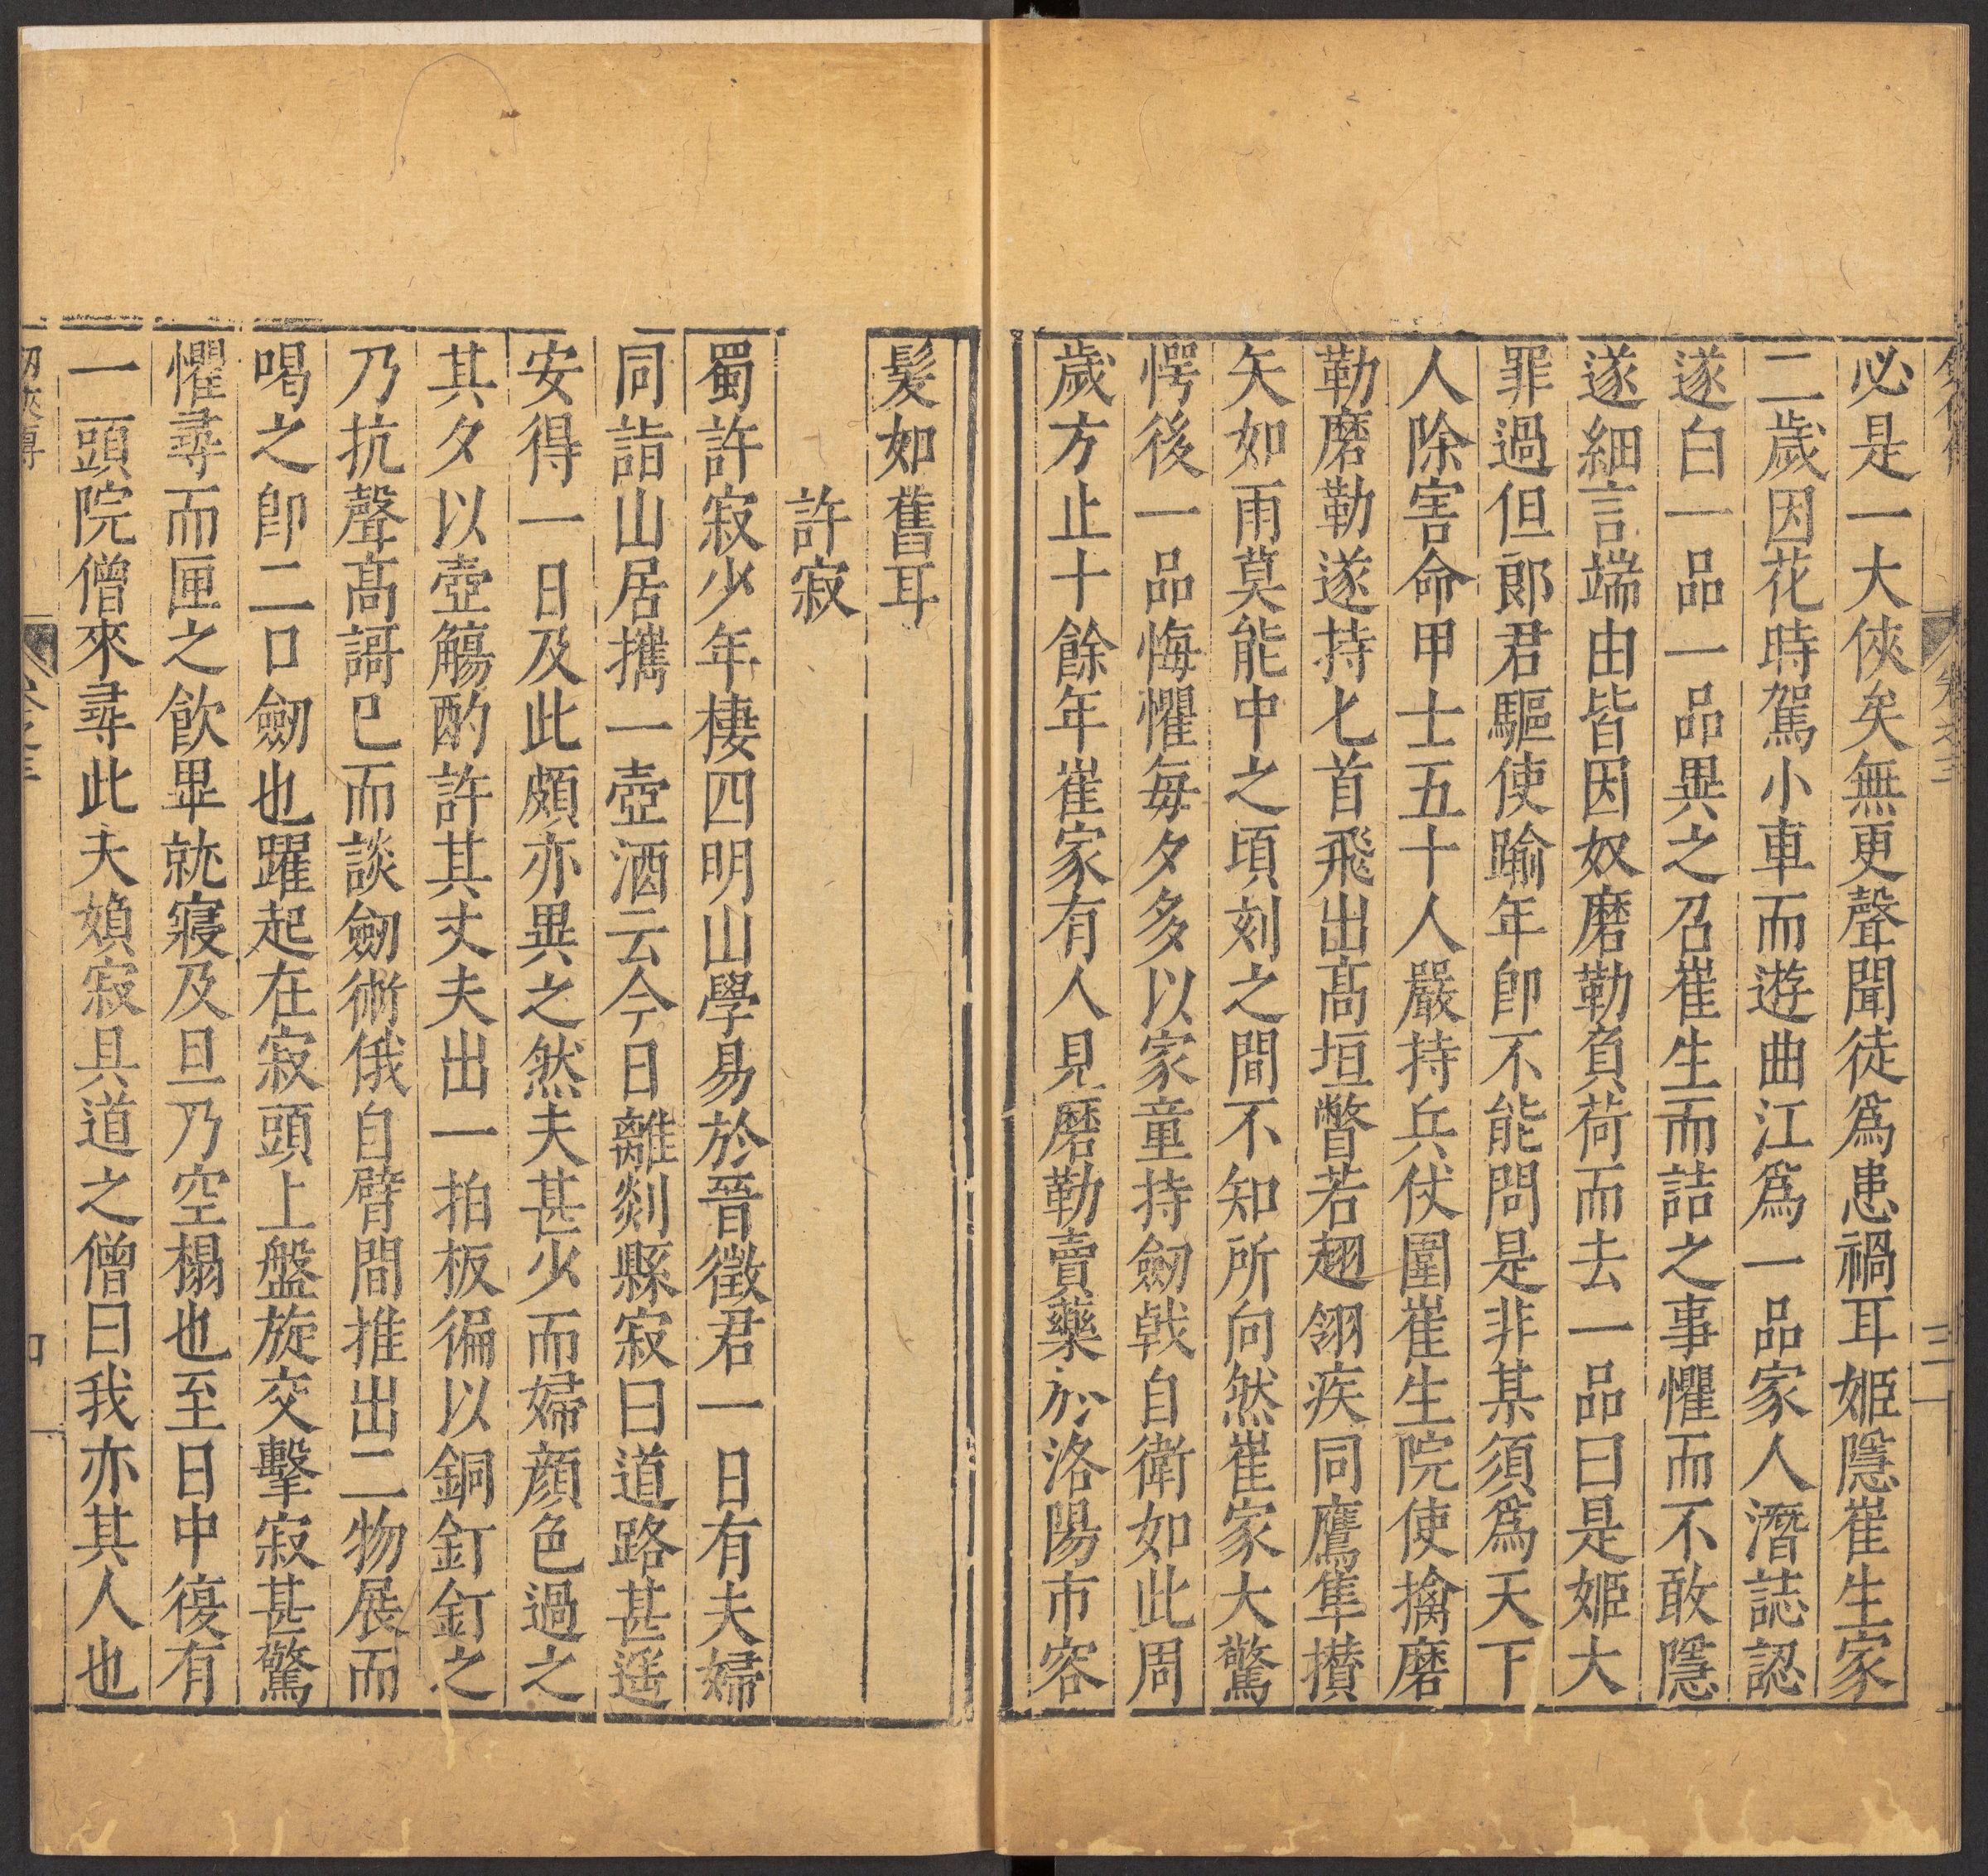 必是一大俠矣無更聲聞徒爲患禍耳姬隱崔生家
二歲因花時駕小車而遊曲江爲一品家人潛誌認
遂白一品一品異之召崔生而詰之事懼而不敢隱
遂細言端由皆因奴磨勒負荷而去一品曰是姬大
罪過但郎君驅使踰年卽不能問是非某須爲天下
人除害命甲士五十人嚴持兵仗圍崔生院使擒磨
勒磨勒遂持匕首飛出高垣瞥若翅翎疾同鷹隼攅
矢如雨莫能中之頃刻之間不知所向然崔家大驚
愕後一品悔懼每夕多以家童持劒戟自衛如此周
歲方止十餘年崔家有人見磨勒賣藥於洛陽市容
髮如舊耳
許寂
蜀許寂少年棲四明山學易於晉徵君一日有夫婦
同詣山居攜一壺酒云今日離剡縣寂曰道路甚遥
安得一日及此頗亦異之然夫甚少而婦顔色過之
其夕以壺觴酌許其丈夫出一拍板徧以銅釘釘之
乃抗聲高謌已而談劒術俄自臂間推出二物展而
喝之卽二口劒也躍起在寂頭上盤旋交擊寂甚驚
懼尋而匣之飲畢就寢及旦乃空榻也至日中復有
一頭院僧來尋此夫婦寂具道之僧曰我亦其人也